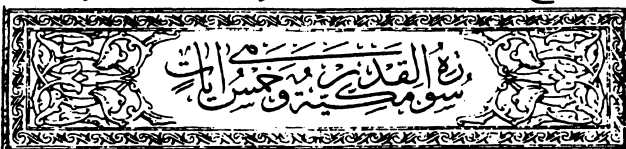 سورة القدر مكية وهي خمس آيات